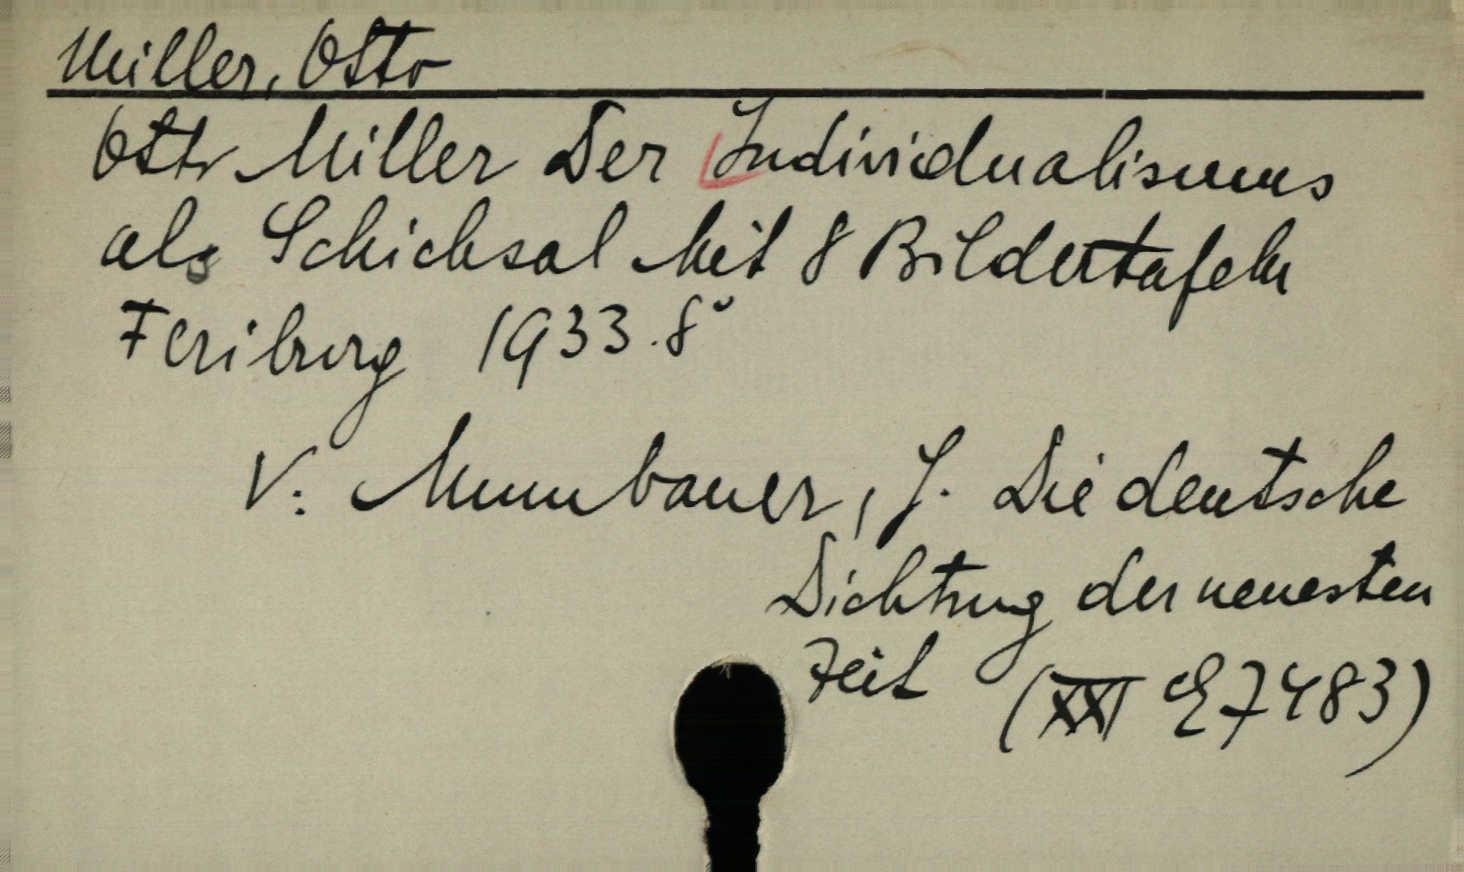 Miller, Otto
Otto Miller Der Individualismus
als Schicksal Mit 8 Bildertafeln
Feriburg 1933. 8°
V: Mumbauer, J. Die deutsche
Dichtung der neuesten
Zeit (XXI E 7483)